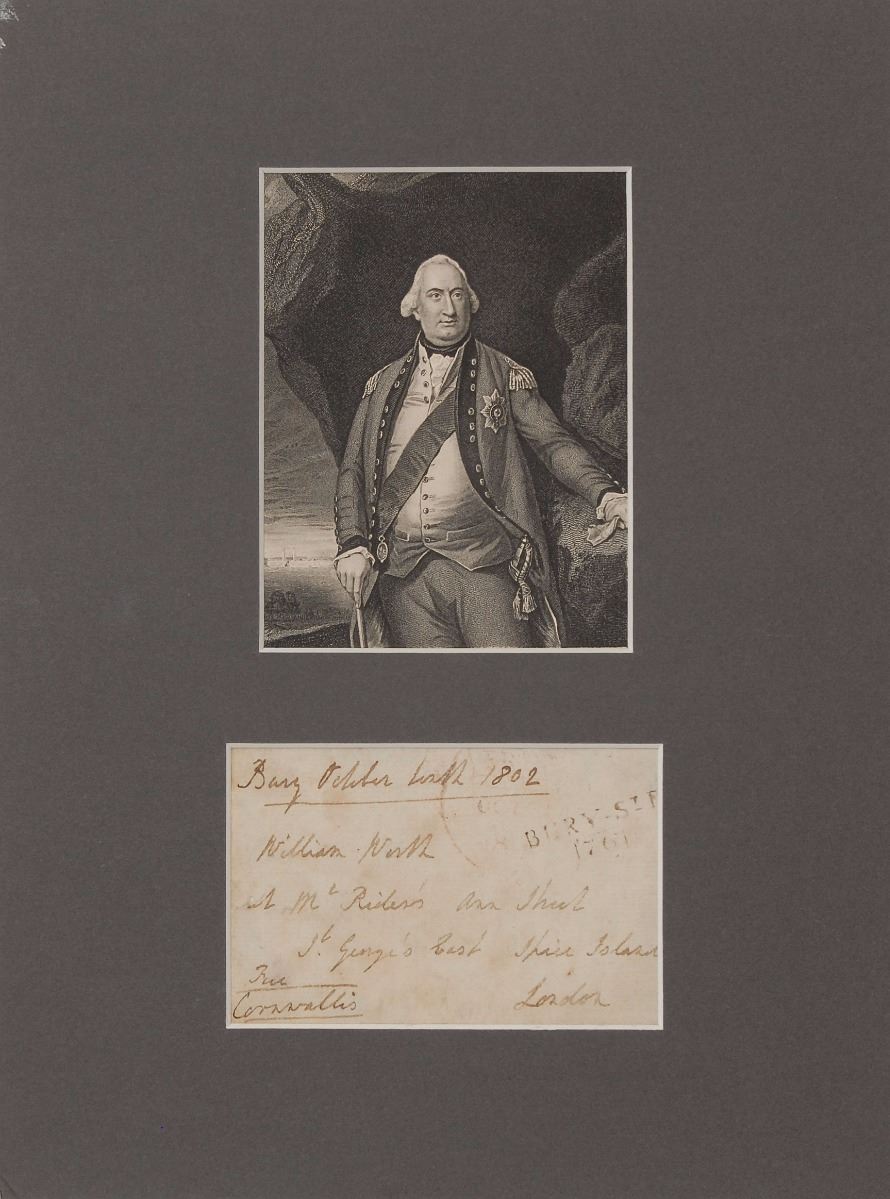 Bury October tenth 1802
BURY-ST
William Worth
at Mr Rider's Ann Street
St. George's East Island
Free
Cornwallis London